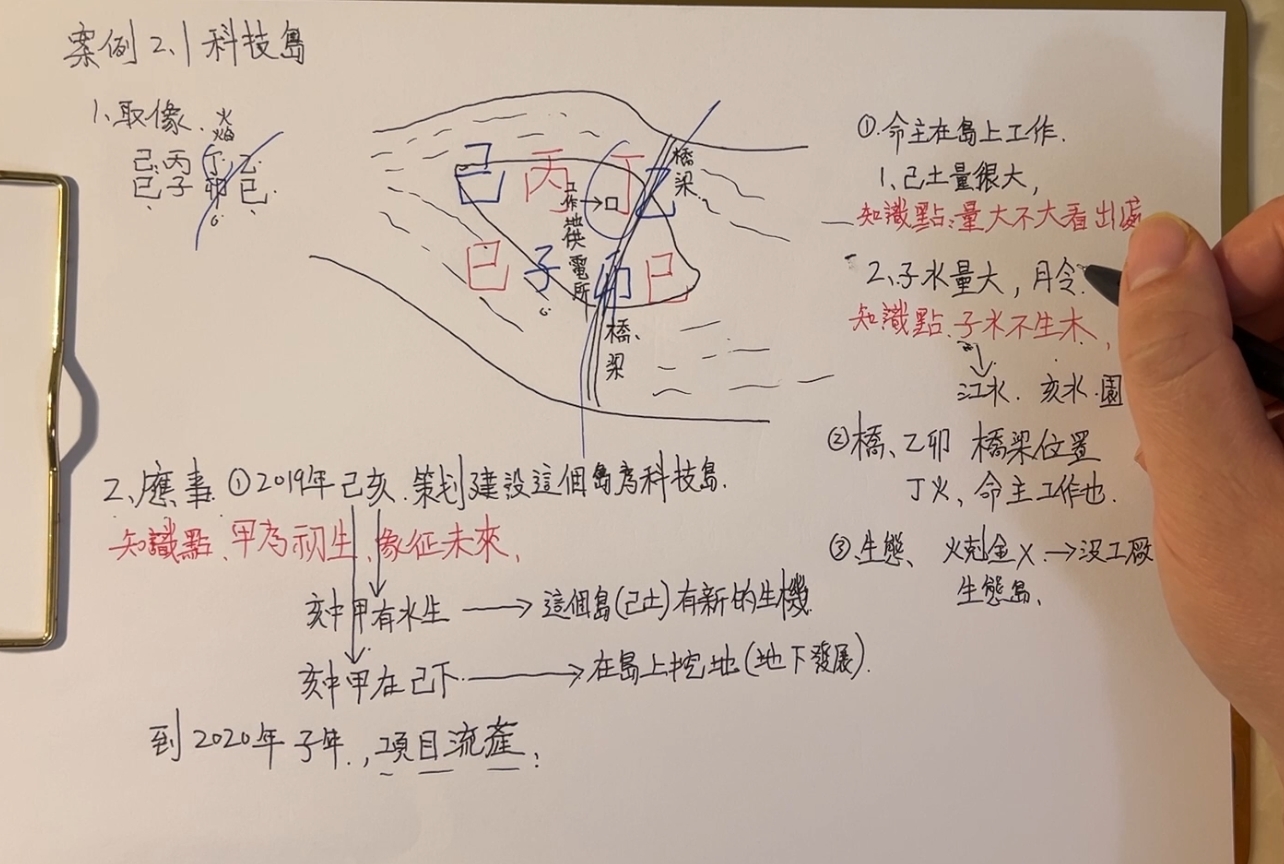 案例2.1科技島
1、取像.
火
焰
己丙丁乙
巳子卯巳.
己丙丁乙
巳子卯巳
工作地供電所
橋梁
橋梁
①.命主在島上工作.
1、己土量很大,
知識點:量大不大看出處
2、子水量大,月令.
知識點.子水不生木,
江水.亥水.園
②橋、乙卯 橋梁位置
丁火、命主工作也.
③、生態、火剋金X.→没工廠
生態島、
2、應事.①2019年己亥.策划建设這個島為科技島.
知識點、甲為初生、象征未來,
亥中甲有水生→這個島(己土)有新的生機.
亥中甲在己下.→在島上挖地(地下發展).
到2020年子年.,項目流產;